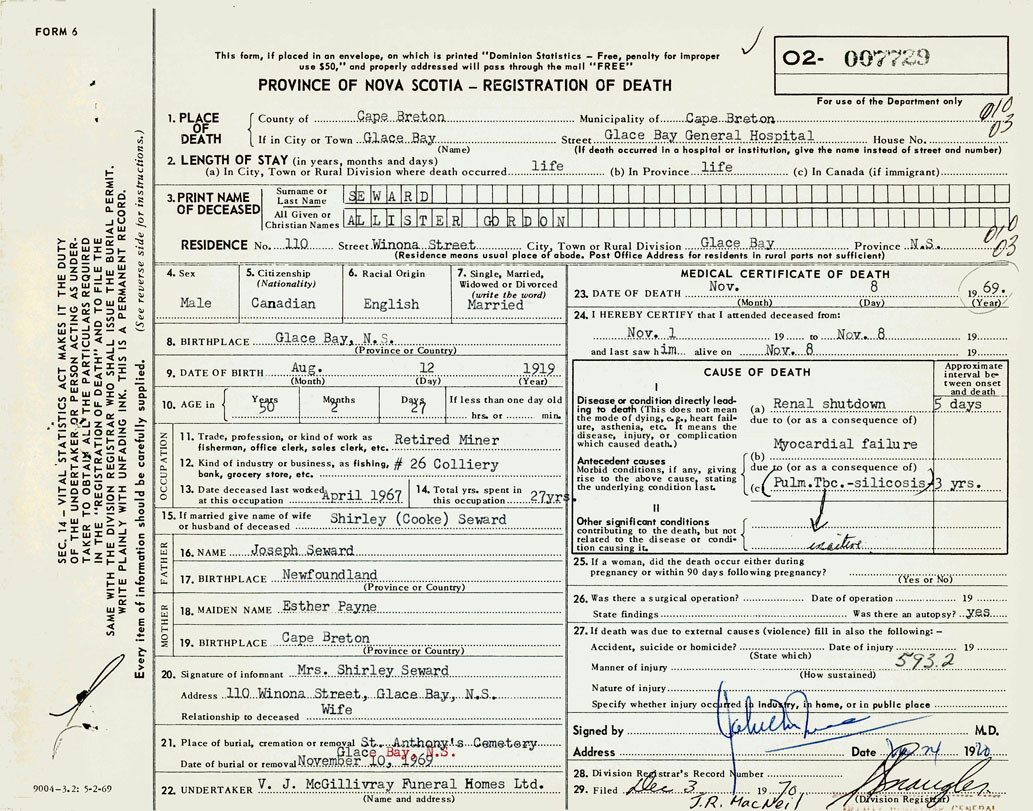 FORM 6
This form, if placed in an envelope, on which is printed "Dominion Statistics – Free, penalty for improper
use $50," and properly addressed will pass through the mail "FREE"
O2- 007729
PROVINCE OF NOVA SCOTIA – REGISTRATION OF DEATH
For use of the Department only
010
03
1. PLACE OF DEATH
County of Cape Breton Municipality of Cape Breton
If in City or Town Glace Bay Street Glace Bay General Hospital House No.
(Name) (If death occurred in a hospital or institution, give the name instead of street and number)
2. LENGTH OF STAY (in years, months and days)
(a) In City, Town or Rural Division where death occurred life (b) In Province life (c) In Canada (if immigrant)
3. PRINT NAME OF DECEASED
Surname or Last Name SEWARD
All Given or Christian Names ALLISTER GORDON
010
03
RESIDENCE No. 110 Street Winona Street City, Town or Rural Division Glace Bay Province N.S.
(Residence means usual place of abode. Post Office Address for residents in rural parts not sufficient)
SEC. 14 – VITAL STATISTICS ACT MAKES IT THE DUTY
OF THE UNDERTAKER OR PERSON ACTING AS UNDER-
TAKER TO OBTAIN ALL THE PARTICULARS REQUIRED
IN THE "REGISTRATION OF DEATH" AND TO FILE THE
SAME WITH THE DIVISION REGISTRAR WHO SHALL ISSUE THE BURIAL PERMIT.
WRITE PLAINLY WITH UNFADING INK. THIS IS A PERMANENT RECORD.
Every item of information should be carefully supplied. (See reverse side for instructions.)
4. Sex
Male
5. Citizenship
(Nationality)
Canadian
6. Racial Origin
English
7. Single, Married,
Widowed or Divorced
(write the word)
Married
8. BIRTHPLACE Glace Bay, N.S.
(Province or Country)
9. DATE OF BIRTH Aug. 12 1919
(Month) (Day) (Year)
10. AGE in Years Months Days If less than one day old
50 2 27 hrs. or min.
OCCUPATION
11. Trade, profession, or kind of work as Retired Miner
fisherman, office clerk, sales clerk, etc.
12. Kind of industry or business, as fishing, # 26 Colliery
bank, grocery store, etc.
13. Date deceased last worked
at this occupation April 1967
14. Total yrs. spent in
this occupation 27yrs.
15. If married give name of wife
or husband of deceased Shirley (Cooke) Seward
FATHER
16. NAME Joseph Seward
17. BIRTHPLACE Newfoundland
(Province or Country)
MOTHER
18. MAIDEN NAME Esther Payne
19. BIRTHPLACE Cape Breton
(Province or Country)
20. Signature of informant Mrs. Shirley Seward
Address 110 Winona Street, Glace Bay, N.S.
Relationship to deceased Wife
21. Place of burial, cremation or removal St. Anthony's Cemetery
Glace Bay, N.S.
Date of burial or removal November 10, 1969
22. UNDERTAKER V. J. McGillivray Funeral Homes Ltd.
(Name and address)
9004-3.2: 5-2-69
MEDICAL CERTIFICATE OF DEATH
23. DATE OF DEATH Nov. 8 1969.
(Month) (Day) (Year)
24. I HEREBY CERTIFY that I attended deceased from:
Nov. 1 19 to Nov. 8 19
and last saw him alive on Nov. 8 19
CAUSE OF DEATH
Approximate
interval be-
tween onset
and death
I
Disease or condition directly lead-
ing to death (This does not mean
the mode of dying, e.g., heart fail-
ure, asthenia, etc. It means the
disease, injury, or complication
which caused death.)
(a) Renal shutdown 5 days
due to (or as a consequence of)
Myocardial failure
Antecedent causes
Morbid conditions, if any, giving
rise to the above cause, stating
the underlying condition last.
(b)
due to (or as a consequence of)
(c) Pulm.Tbc.-silicosis 3 yrs.
II
Other significant conditions
contributing to the death, but not
related to the disease or condi-
tion causing it.
inactive
25. If a woman, did the death occur either during
pregnancy or within 90 days following pregnancy?
(Yes or No)
26. Was there a surgical operation? Date of operation 19
State findings Was there an autopsy? yes
27. If death was due to external causes (violence) fill in also the following: –
Accident, suicide or homicide? Date of injury 19
(State which)
593.2
Manner of injury
(How sustained)
Nature of injury
Specify whether injury occurred in industry, in home, or in public place
Signed by M.D.
Address Date 24 1970
28. Division Registrar's Record Number
29. Filed Dec 3 1970
(Division Registrar)
J.R. MacNeil
GENERAL